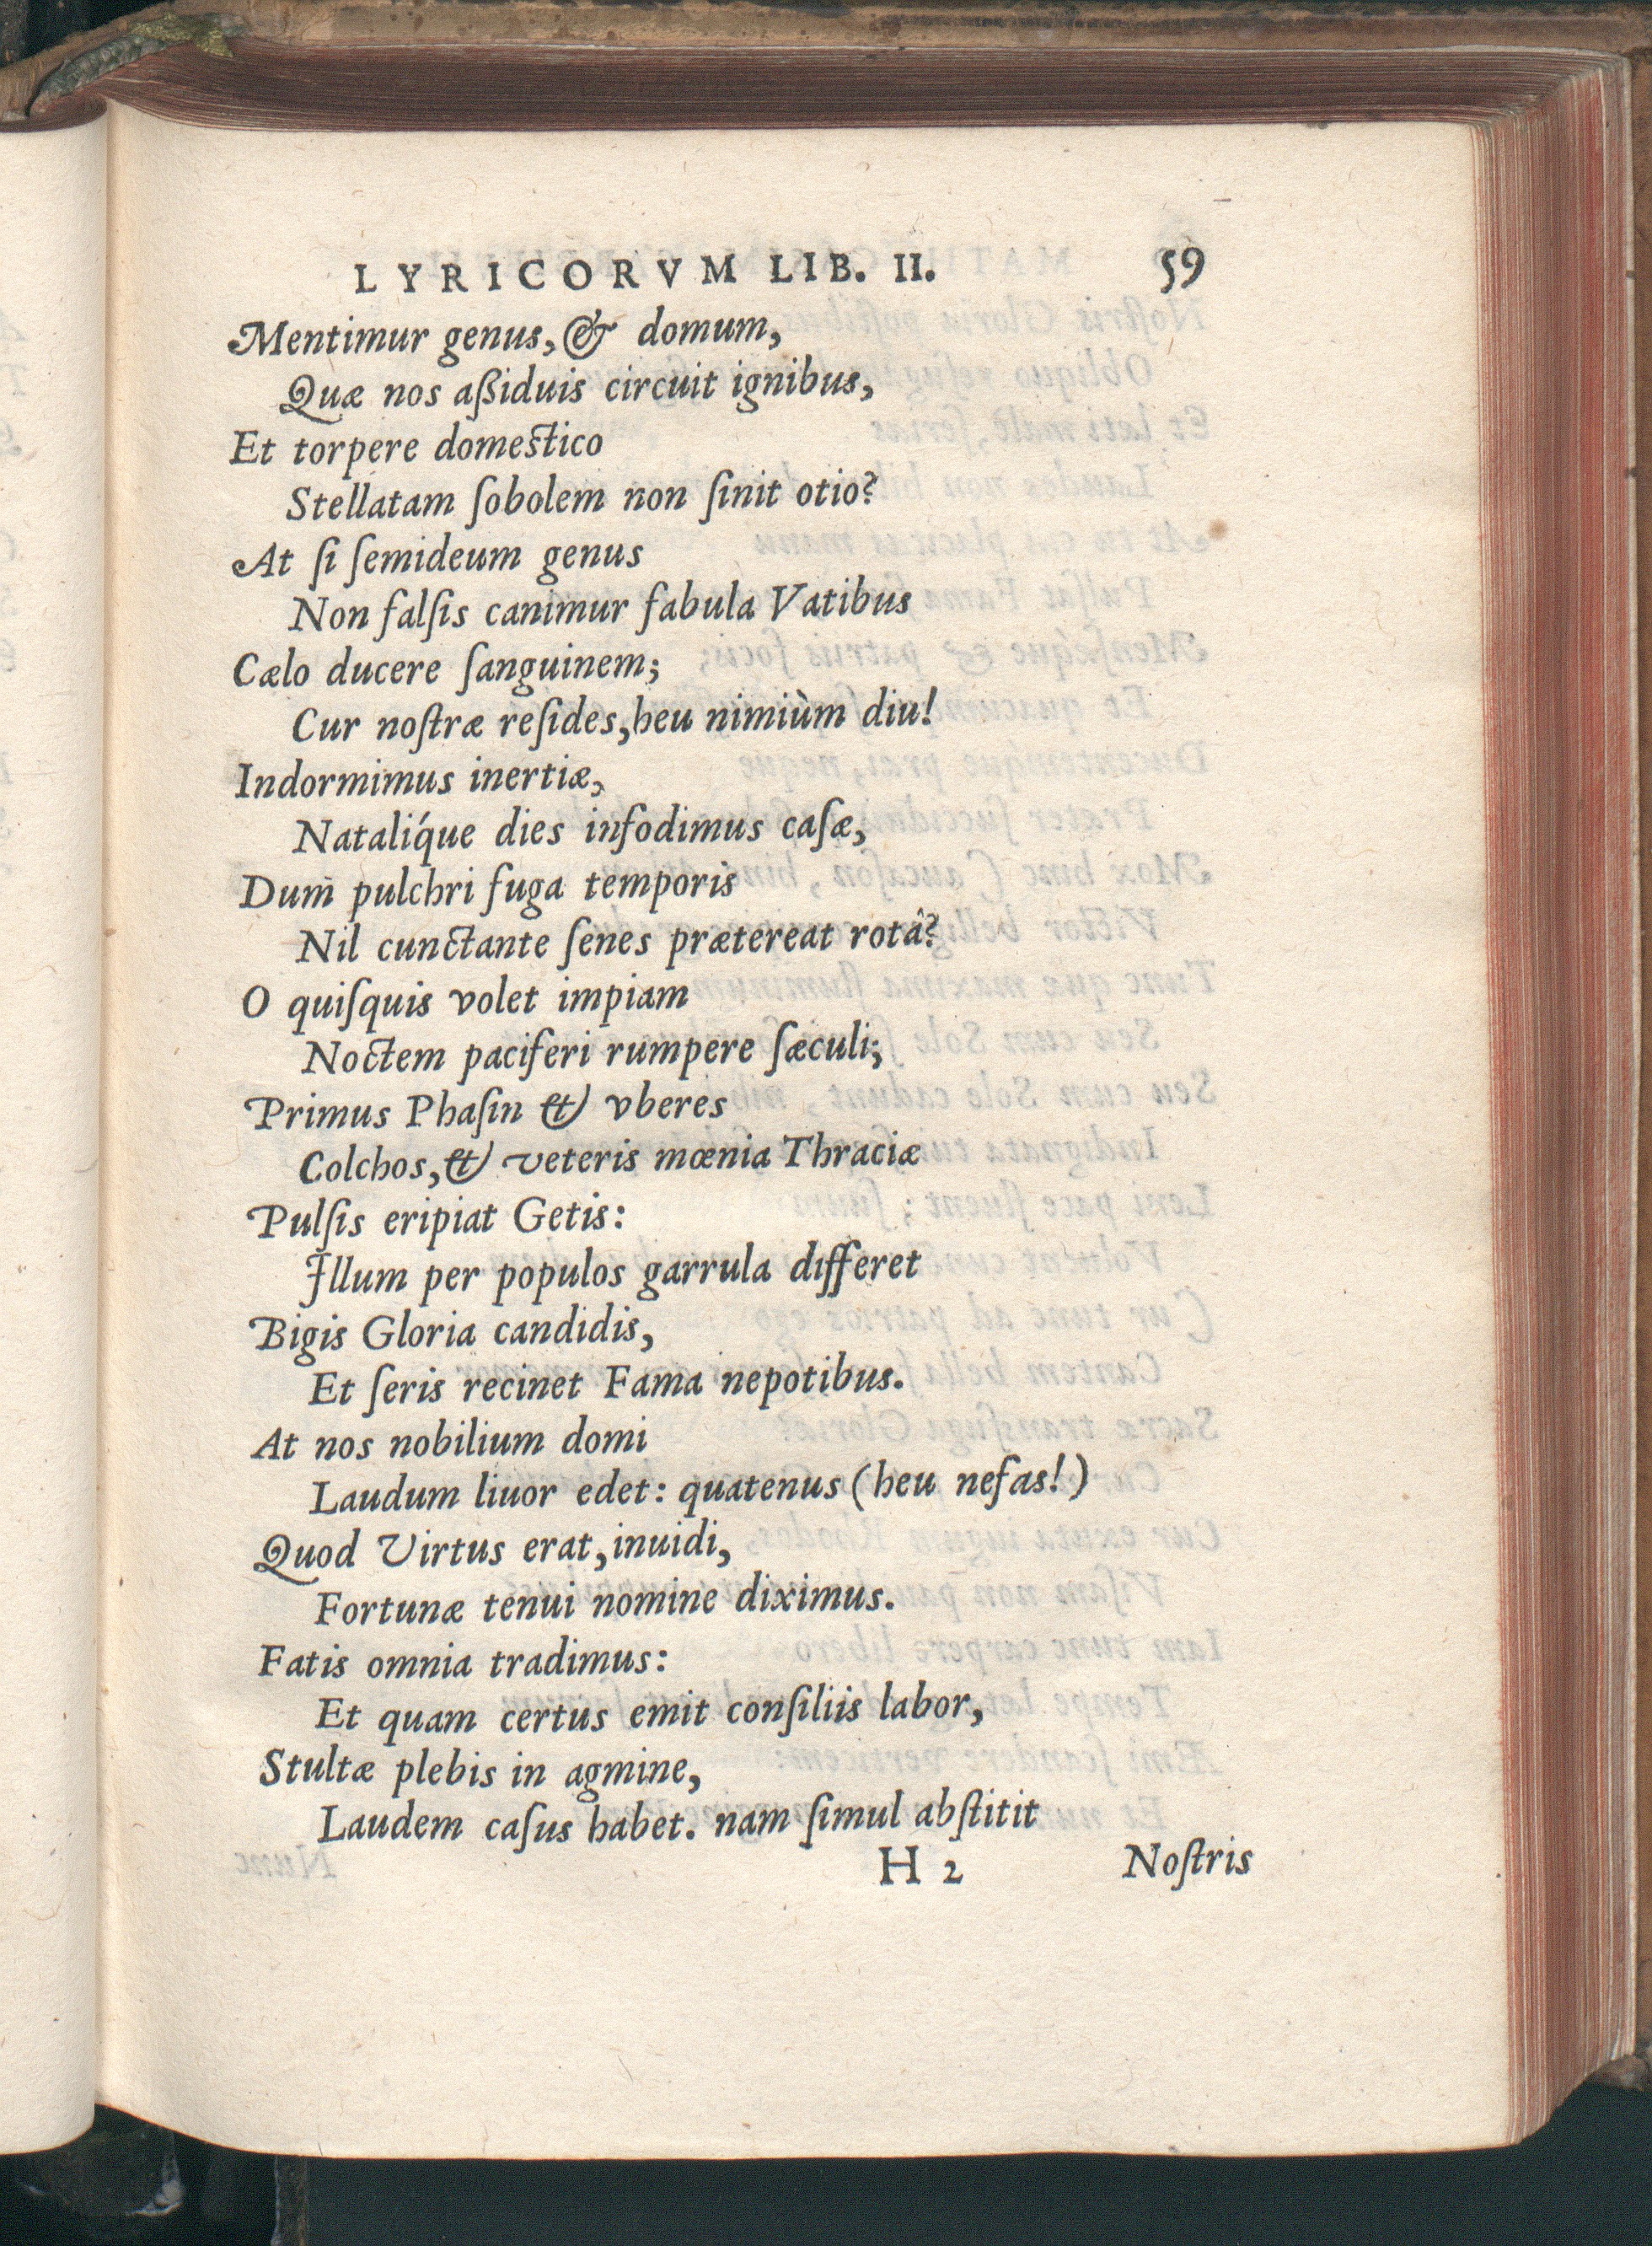 LYRICORVM LIB. II. 59
Mentimur genus, & domum,
Quæ nos aßiduis circuit ignibus,
Et torpere domestico
Stellatam ſobolem non ſinit otio?
At ſi ſemideum genus
Non falſis canimur fabula Vatibus
Cælo ducere ſanguinem;
Cur noſtræ reſides, heu nimiùm diu!
Indormimus inertiæ,
Natalíque dies infodimus caſæ,
Dum pulchri fuga temporis
Nil cunctante ſenes prætereat rotâ?
O quiſquis volet impiam
Noctem paciferi rumpere ſæculi;
Primus Phaſin & vberes
Colchos, & veteris mœnia Thraciæ
Pulſis eripiat Getis:
Illum per populos garrula differet
Bigis Gloria candidis,
Et ſeris recinet Fama nepotibus.
At nos nobilium domi
Laudum liuor edet: quatenus (heu nefas!)
Quod Virtus erat, inuidi,
Fortunæ tenui nomine diximus.
Fatis omnia tradimus:
Et quam certus emit conſiliis labor,
Stultæ plebis in agmine,
Laudem caſus habet. nam ſimul abſtitit
H 2 Noſtris